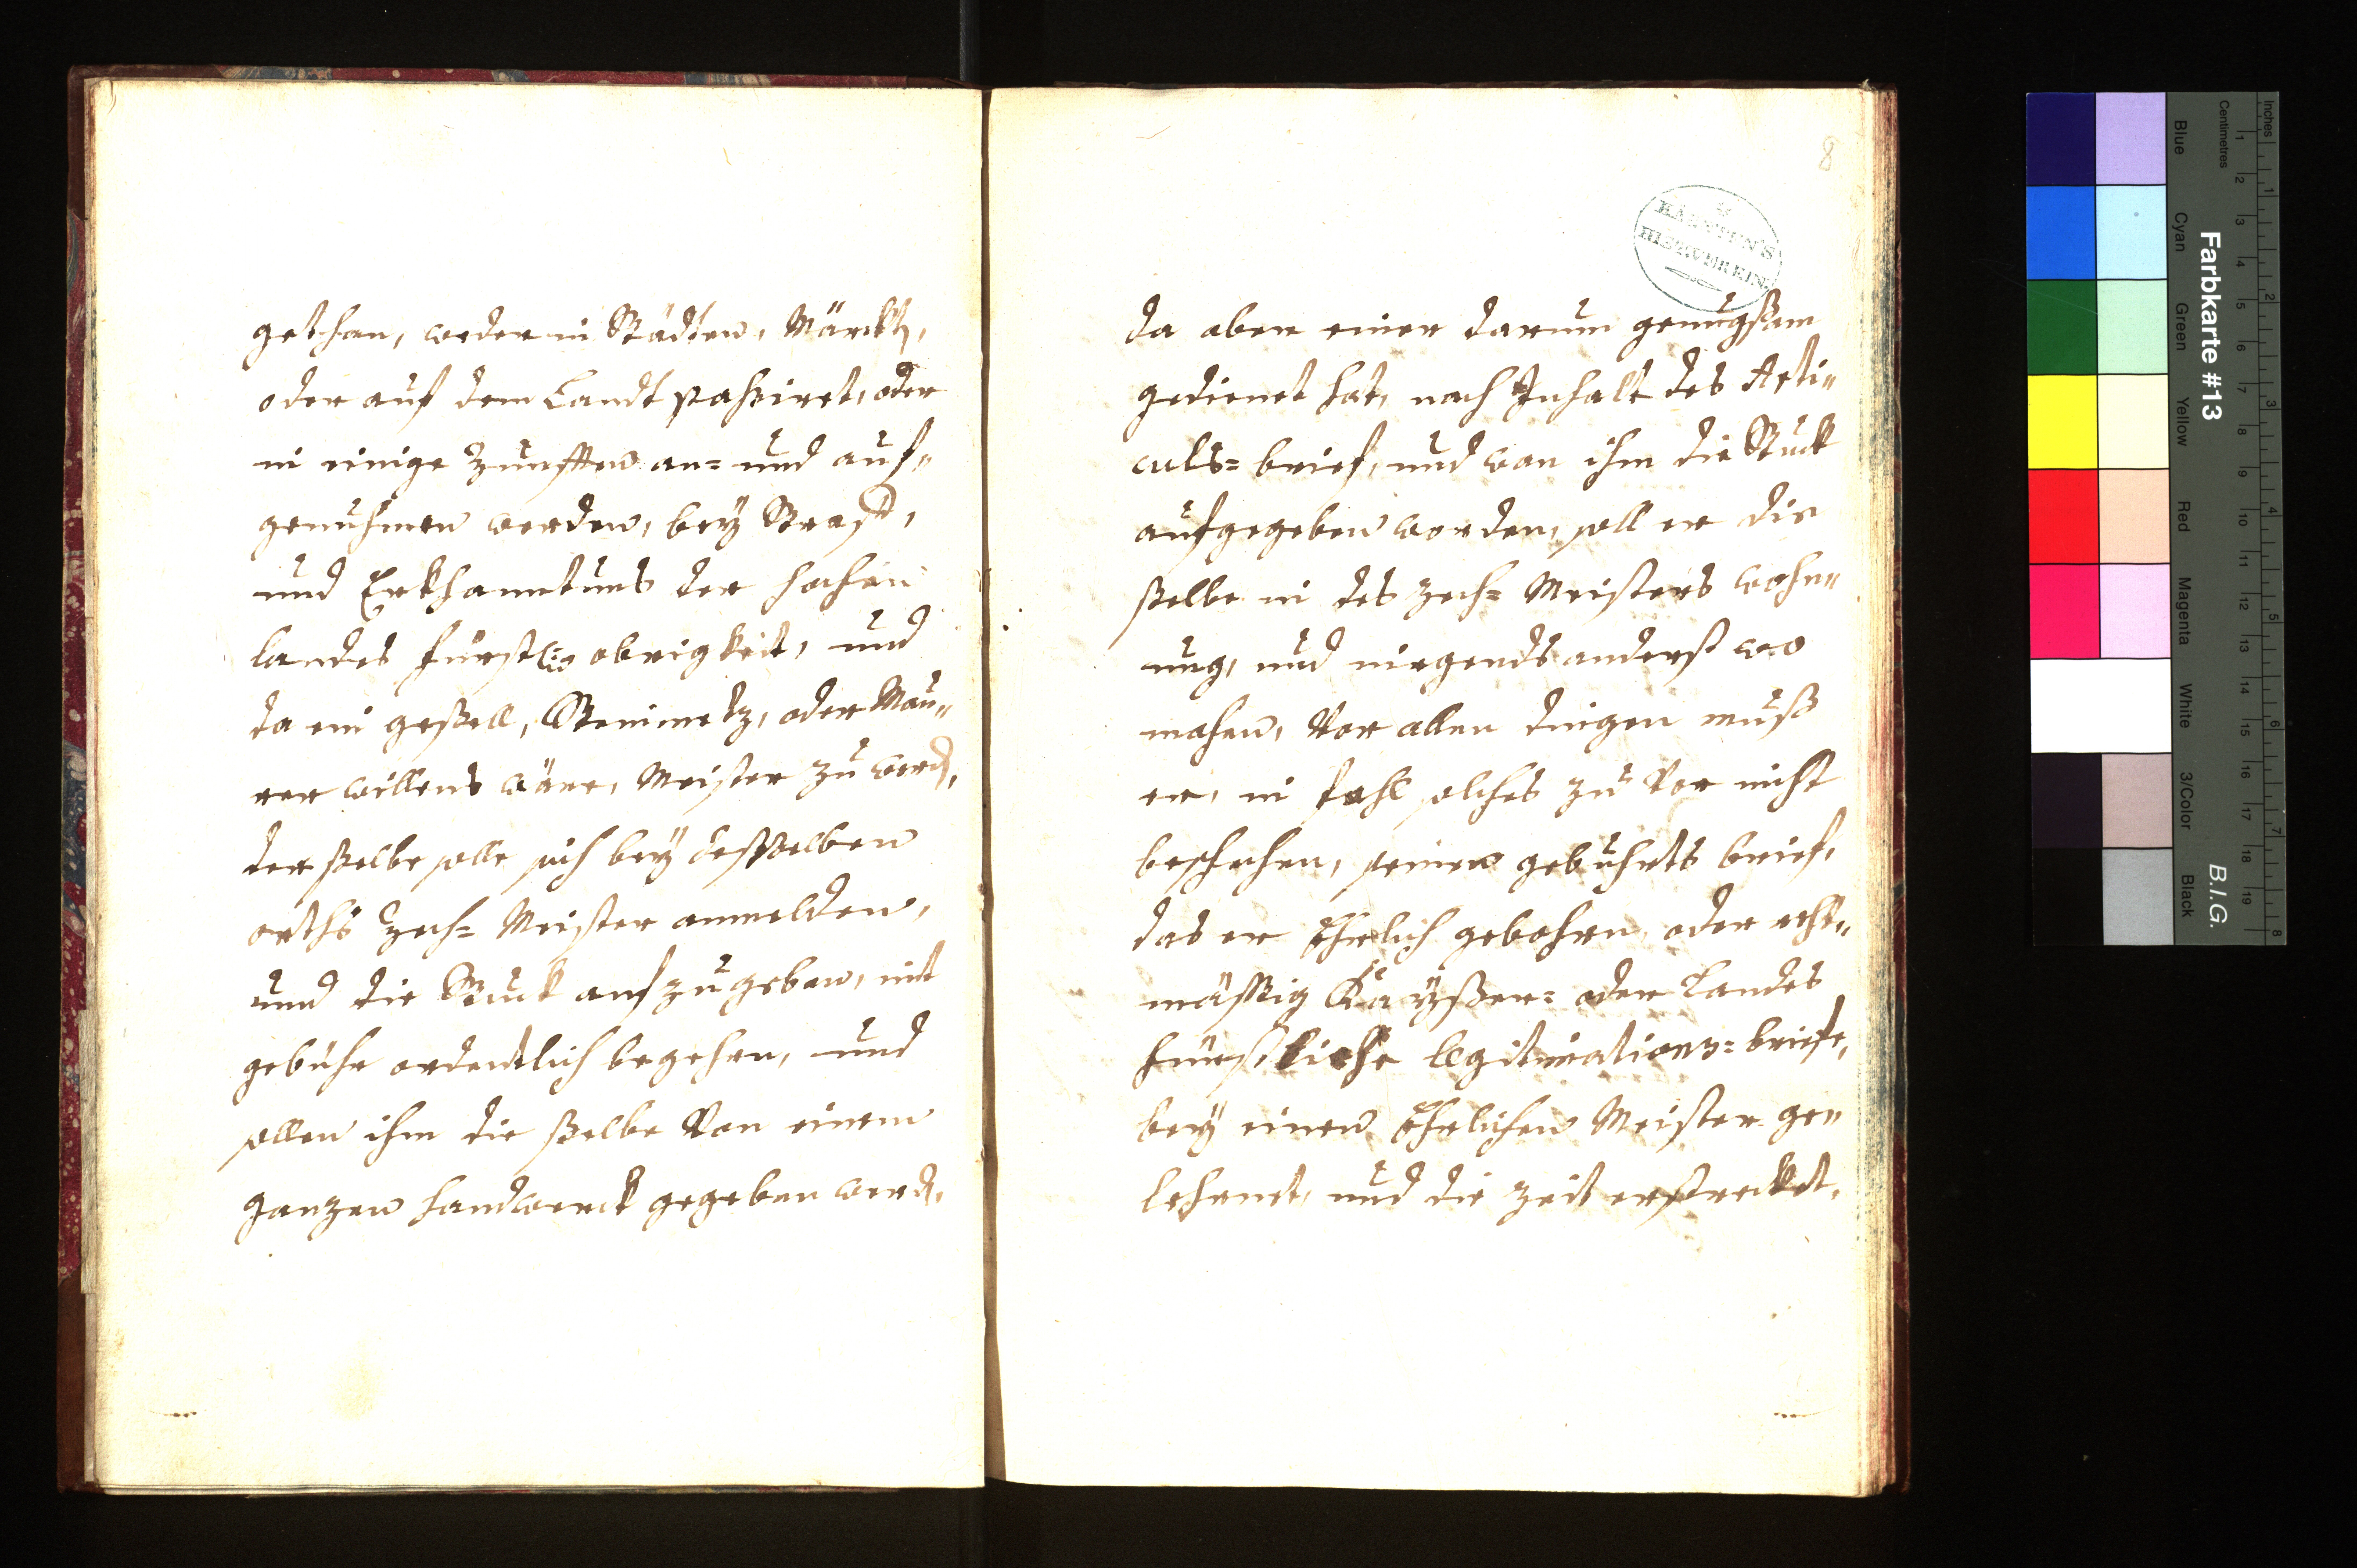 gethan, weder in Städten, Märckh,
oder auf dem Landt paßiret, oder
in einige Zunfften an= und auf„
genuhmen werden, bey Straff,
und Erkhanntnus der hochen
landes fürstl: obrigkeit, und
da ein gesell, Steinmetz, oder Mau„
rer willens wäre, Meister zu werd,
der ßelbe solle sich bey deßselben
orths Zech= Meister anmelden,
und die Stuck aufzugeben, mit
gebühr ordentlich begehren, und
sollen ihm die ßelbe Von einem
ganzen handwerck gegeben werd.
8
KÄRNTEN'S
da aber einer darum genugßam
gedienet hat, nach Inhalt des Arti„
culs= brief, und wan ihm die Stuck
aufgegeben worden, soll er die
ßelbe in des Zech= Meisters wohn„
ung, und nirgends anderst wo
machen, Vor allen dingen muß
er, in fahl solches zu Vor nicht
beschehen, seinen gebuhrts brief,
das er Ehrlich gebohren, oder recht„
mäßig Kaÿßer= oder Landes
fürstliche legitimations= briefe,
bey einen Ehrlichen Meister ge„
lehrnet, und die Zeit erstrecket,
Farbkarte #13
B.I.G.
Blue
Cyan
Green
Yellow
Red
Magenta
White
3/Color
Black
Inches
Centimetres
1 2 3 4 5 6 7 8 9 10 11 12 13 14 15 16 17 18 19
1 2 3 4 5 6 7 8